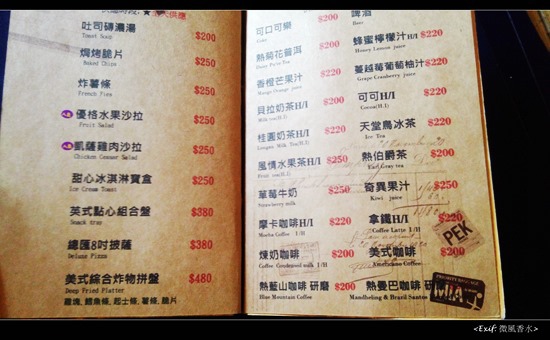 吐司磚濃湯 $200
Toast Souk
焗烤脆片 $250
Baked Chips
炸薯條 $250
French Fies
優格水果沙拉 $250
Fruit Salad
凱薩雞肉沙拉 $250
Chicken Ceasar Salad
甜心冰淇淋寶盒 $250
Ice Cream Toast
英式點心組合盤 $380
Snack tray
總匯8吋披薩 $380
Deluxe Pizza
美式綜合炸物拼盤 $480
Deep Fried Platter
雞塊, 鱈魚條, 起士條, 薯條, 脆片
可口可樂 $200
Coke
熱菊花普洱 $200
香橙芒果汁 $220
Mango Orange juice
貝拉奶茶H/I $200
Milk tea(H.I)
桂圓奶茶H/I $220
Longan Milk Tea(H.I)
風情水果茶H/I $220
Fruit Tea(H.I)
草莓牛奶 $250
Strawberry milk
摩卡咖啡H/I $220
Mocha Coffee I/H
煉奶咖啡 $200
Coffee Condensed milk I/H
熱藍山咖啡 研磨 $200
Blue Mountain Coffee
啤酒
Beer
蜂蜜檸檬汁H/I $220
Honey Lemon juice
蔓越莓葡萄柚汁 $220
Grape Cranberry juice
可可H/I $220
Cocoa(H.I)
天堂鳥冰茶 $220
Ice Tea
熱伯爵茶 $200
Earl Gray tea
奇異果汁 $250
Kiwi juice
拿鐵H/I $220
Coffee Latte I/H
美式咖啡 $200
Americano Coffee
熱曼巴咖啡 研磨
Mandheling & Brazil Santos
PEK
MIA
<Exif: 微風香水>